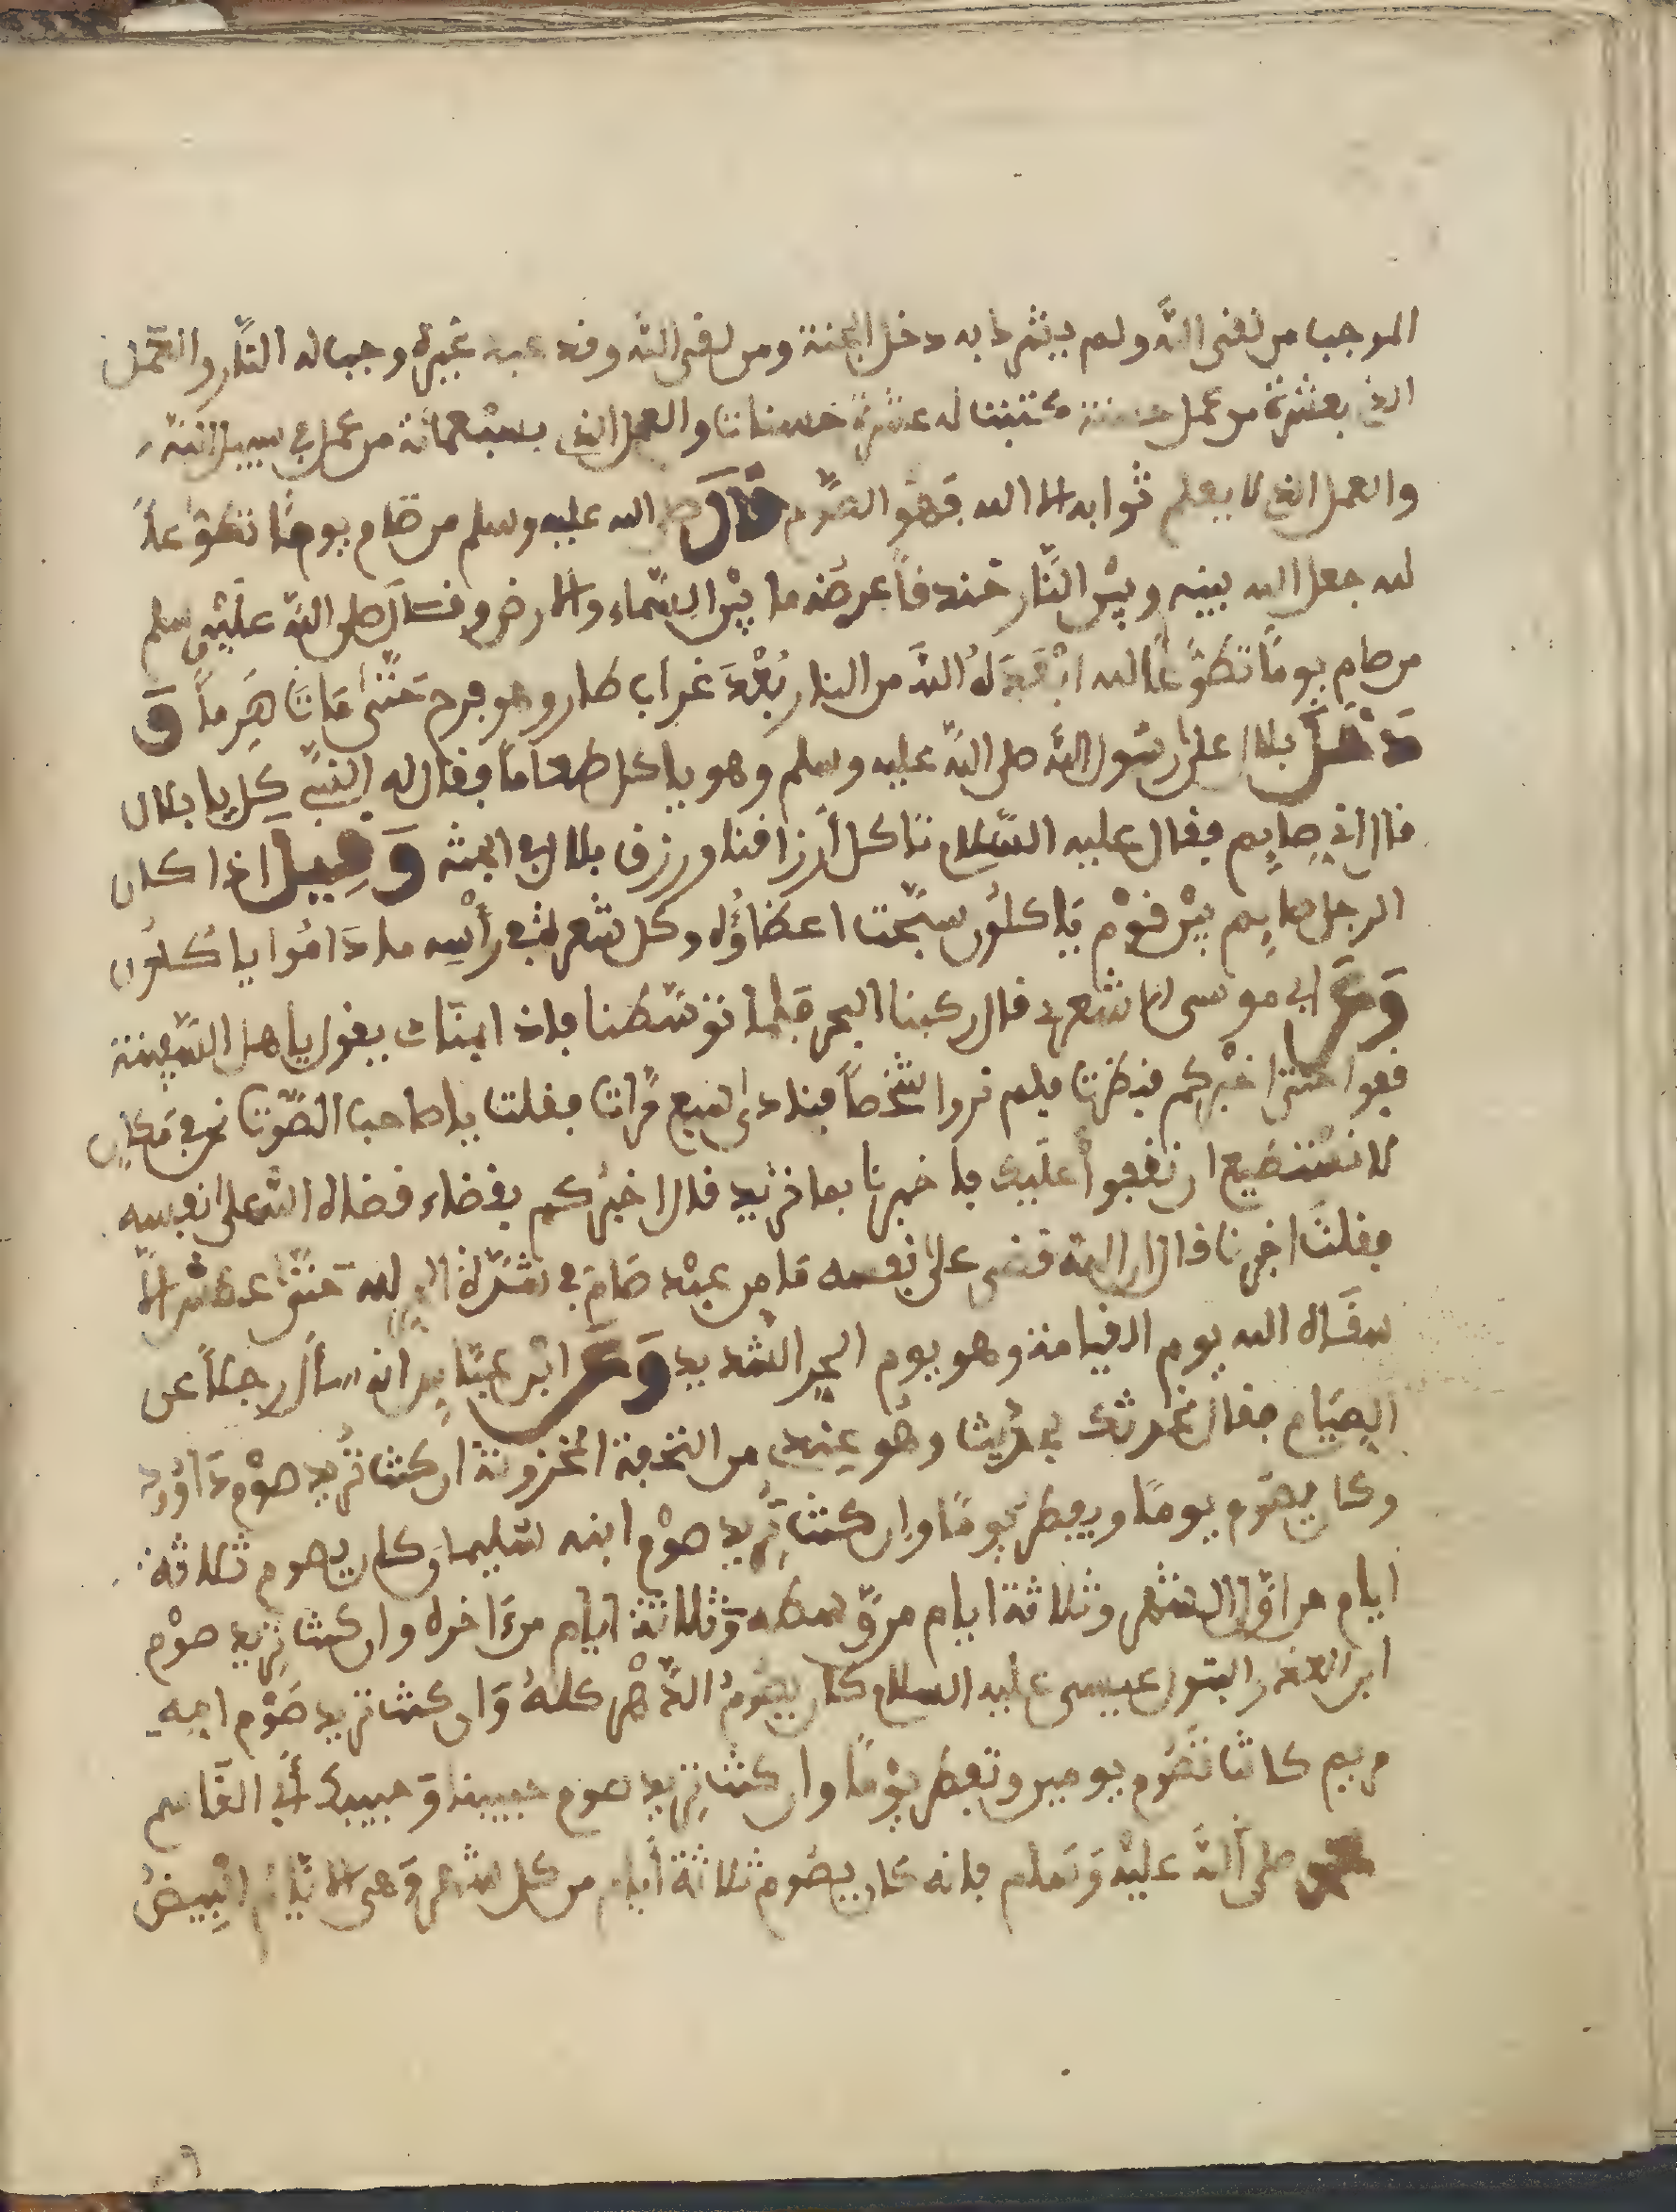 الموجبا من لقى الله ولم يشرك به دخل الجنة ومن لقى الله وقد عبد غيره وجب له النار والعمل
الذي بعشرة من عمل حسنة كتبت له عشرة حسنات والعمل الذي بسبعمائة من عمل في سبيل الله
والعمل الذي لا يعلم ثوابه الا الله فهو الصوم قال صلى الله عليه وسلم من صام يوما تطوعا
لله جعل الله بينه وبين النار خندقا عرضه ما بين السماء والارض وقال صلى الله عليه وسلم
من صام يوما تطوعا لله ابعده الله من النار بعد غراب طار وهو فرح حتى مات هرما و
دخل بلال على رسول الله صلى الله عليه وسلم وهو ياكل طعاما فقال له النبي كل يا بلال
قال اني صايم فقال عليه السلام ناكل ارزاقنا ورزق بلال في الجنة وقيل اذا كان
الرجل صايم بين قوم ياكلون سبحت اعضاؤه وكل شعرة في رأسه ما داموا ياكلون
وعن ابي موسى الاشعري قال ركبنا البحر فلما توسطنا فاذا مناد يقول يا هل السفينة
قفوا حتى اخبركم فنظرنا فلم نروا شخصا فنادى سبع مرات فقلت يا صاحب الصوت نحن في مكان
لا نستطيع ان نقفوا عليك فاخبرنا بما تريد قال اخبركم بقضاء قضاه الله على نفسه
فقلت اخبرنا قال ان الله قضى على نفسه ما من عبد صام في شدة الحر لله حتى عطش الا
سقاه الله يوم القيامة وهو يوم الحر الشديد وعن ابن عباس انه سأل رجلا عن
الصيام فقال نحدثك بحديث وهو عندي من التحفة المخزونة ان كنت تريد صوم داوود
وكان يصوم يوما ويفطر يوما وان كنت تريد صوم ابنه سليمان وكان يصوم ثلاثة
ايام من اول الشهر وثلاثة ايام من وسطه وثلاثة ايام من ءاخره وان كنت تريد صوم
ابن العذراء البتول عيسى عليه السلام كان يصوم الدهر كله وان كنت تريد صوم امه
مريم كانت تصوم يومين وتفطر يوما وان كنت تريد صوم حبيبنا وحبيبك أبي القاسم
صلى الله عليه وسلم فانه كان يصوم ثلاثة أيام من كل شهر وهي الايام البيض